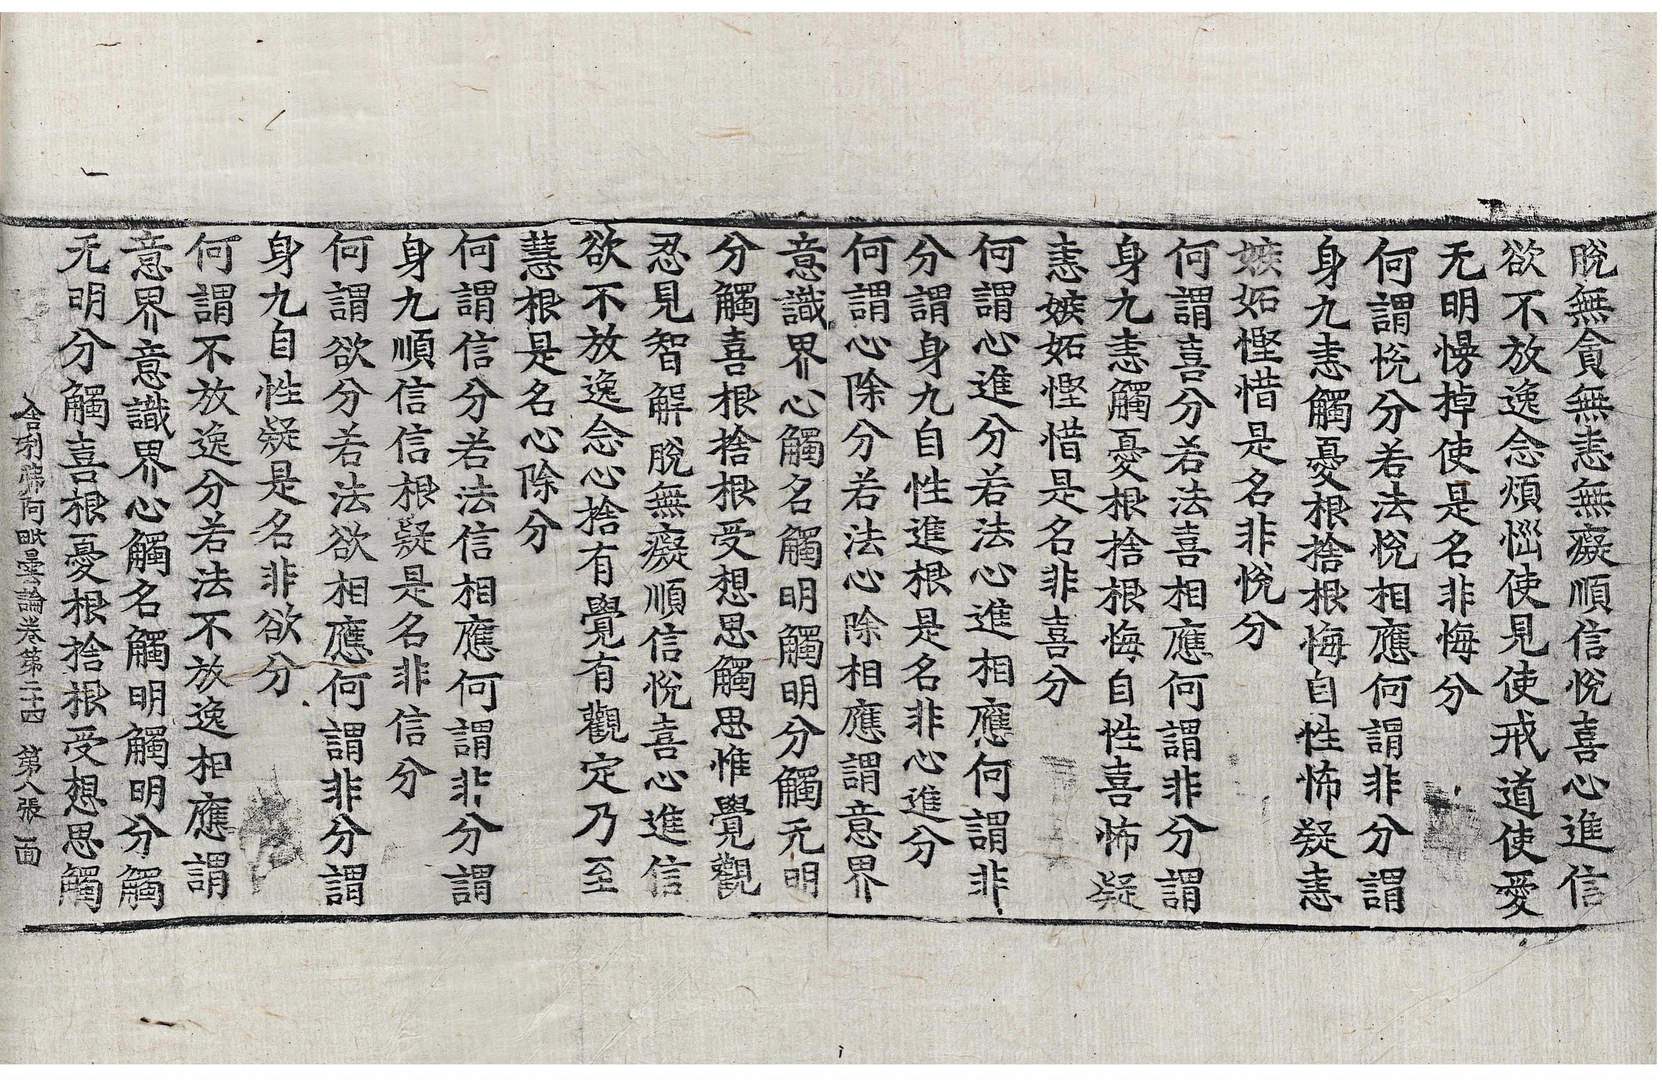 脫無貪無恚無癡順信悅喜心進信
欲不放逸念煩惱使見使戒道使愛
无明慢掉使是名非悔分
何謂悅分若法悅相應何謂非分謂
身九恚觸憂根捨根悔自性怖疑恚
嫉妬慳惜是名非悅分
何謂喜分若法喜相應何謂非分謂
身九恚觸憂根捨根悔自性喜怖疑
恚嫉妬慳惜是名非喜分
何謂心進分若法心進相應何謂非
分謂身九自性進根是名非心進分
何謂心除分若法心除相應謂意界
意識界心觸名觸明觸明分觸无明
分觸喜根捨根受想思觸思惟覺觀
忍見智解脫無癡順信悅喜心進信
欲不放逸念心捨有覺有觀定乃至
慧根是名心除分
何謂信分若法信相應何謂非分謂
身九順信信根疑是名非信分
何謂欲分若法欲相應何謂非分謂
身九自性疑是名非欲分
何謂不放逸分若法不放逸相應謂
意界意識界心觸名觸明觸明分觸
无明分觸喜根憂根捨根受想思觸
舍利弗阿毗曇論卷第二十四 第八張 面